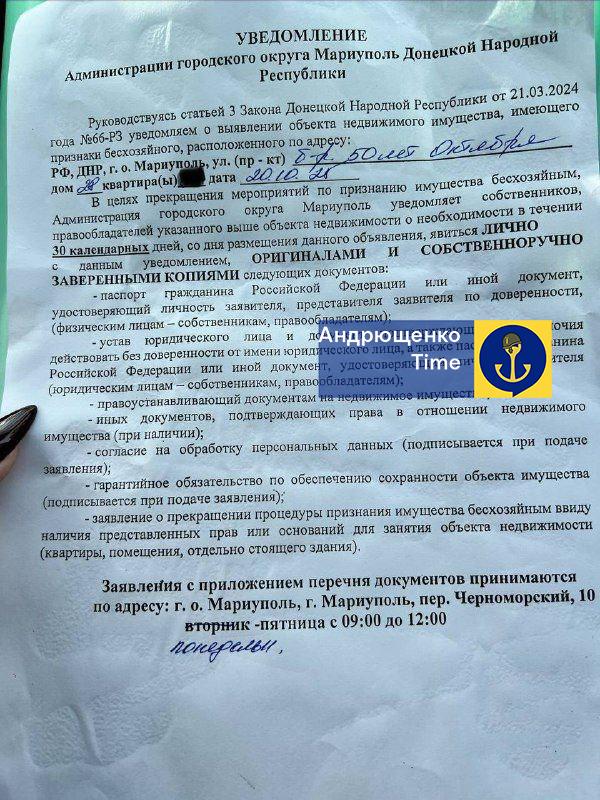 УВЕДОМЛЕНИЕ
Администрации городского округа Мариуполь Донецкой Народной
Республики
Руководствуясь статьей 3 Закона Донецкой Народной Республики от 21.03.2024
года №66-РЗ уведомляем о выявлении объекта недвижимого имущества, имеющего
признаки бесхозяйного, расположенного по адресу:
РФ, ДНР, г. о. Мариуполь, ул. (пр - кт) б-р 50 лет Октября
дом 28 квартира(ы) дата 20.10.
В целях прекращения мероприятий по признанию имущества бесхозяйным,
Администрация городского округа Мариуполь уведомляет собственников,
правообладателей указанного выше объекта недвижимости о необходимости в течении
30 календарных дней, со дня размещения данного объявления, явиться ЛИЧНО
с данным уведомлением, ОРИГИНАЛАМИ И СОБСТВЕННОРУЧНО
ЗАВЕРЕННЫМИ КОПИЯМИ следующих документов:
- паспорт гражданина Российской Федерации или иной документ,
удостоверяющий личность заявителя, представителя заявителя по доверенности,
(физическим лицам – собственникам, правообладателям);
- устав юридического лица и
действовать без доверенности от имени юридического лица, а также
Российской Федерации или иной документ,
(юридическим лицам – собственникам, правообладателям);
- правоустанавливающий документам на недвижимое
- иных документов, подтверждающих права в отношении недвижимого
имущества (при наличии);
- согласие на обработку персональных данных (подписывается при подаче
заявления);
- гарантийное обязательство по обеспечению сохранности объекта имущества
(подписывается при подаче заявления);
- заявление о прекращении процедуры признания имущества бесхозяйным ввиду
наличия представленных прав или оснований для занятия объекта недвижимости
(квартиры, помещения, отдельно стоящего здания).
Заявления с приложением перечня документов принимаются
по адресу: г. о. Мариуполь, г. Мариуполь, пер. Черноморский, 10
вторник -пятница с 09:00 до 12:00
понедельн.
Андрющенко
Time